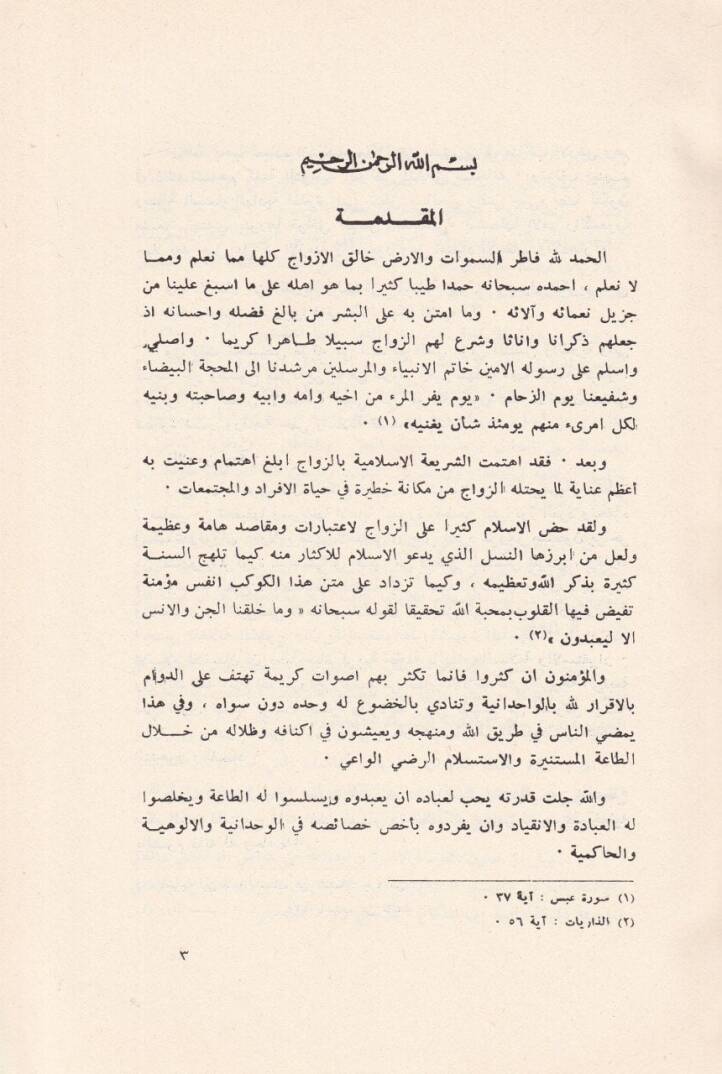 بسم الله الرحمن الرحيم
المقدمة
الحمد لله فاطر السموات والارض خالق الازواج كلها مما نعلم ومما
لا نعلم ، احمده سبحانه حمدا طيبا كثيرا بما هو اهله على ما اسبغ علينا من
جزيل نعمائه وآلائه ٠ وما امتن به على البشر من بالغ فضله واحسانه اذ
جعلهم ذكرانا واناثا وشرع لهم الزواج سبيلا طاهرا كريما ٠ واصلي
واسلم على رسوله الامين خاتم الانبياء والمرسلين مرشدنا الى المحجة البيضاء
وشفيعنا يوم الزحام ٠ «يوم يفر المرء من اخيه وامه وابيه وصاحبته وبنيه
لكل امرىء منهم يومئذ شأن يغنيه» (١) ٠
وبعد ٠ فقد اهتمت الشريعة الاسلامية بالزواج ابلغ اهتمام وعنيت به
أعظم عناية لما يحتله الزواج من مكانة خطيرة في حياة الافراد والمجتمعات ٠
ولقد حض الاسلام كثيرا على الزواج لاعتبارات ومقاصد هامة وعظيمة
ولعل من ابرزها النسل الذي يدعو الاسلام للاكثار منه كيما تلهج السنة
كثيرة بذكر الله وتعظيمه ، وكيما تزداد على متن هذا الكوكب انفس مؤمنة
تفيض فيها القلوب بمحبة الله تحقيقا لقوله سبحانه « وما خلقنا الجن والانس
الا ليعبدون »(٢) ٠
والمؤمنون ان كثروا فانما تكثر بهم اصوات كريمة تهتف على الدوام
بالاقرار لله بالواحدانية وتنادي بالخضوع له وحده دون سواه ، وفي هذا
يمضي الناس في طريق الله ومنهجه ويعيشون في اكنافه وظلاله من خلال
الطاعة المستنيرة والاستسلام الرضي الواعي ٠
والله جلت قدرته يحب لعباده ان يعبدوه ويسلسوا له الطاعة ويخلصوا
له العبادة والانقياد وان يفردوه بأخص خصائصه في الوحدانية والالوهية
والحاكمية ٠
(١) سورة عبس : آية ٣٧ ٠
(٢) الذاريات : آية ٥٦ ٠
٣